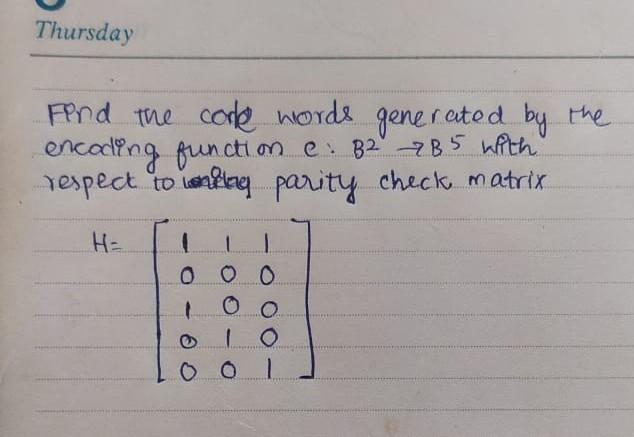 Thursday
Find the code words generated by the
encoding function e: B2 → B5 with
respect to parity check matrix
H= 1 1 1
0 0 0
1 0 0
0 1 0
0 0 1